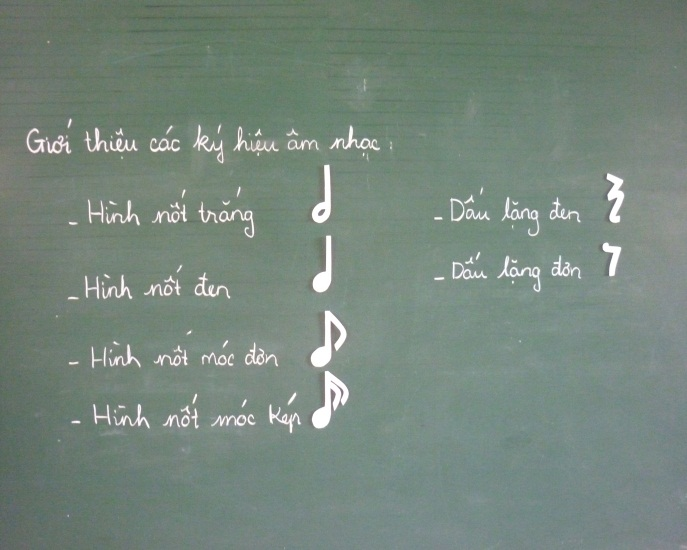 Giới thiệu các ký hiệu âm nhạc:
- Hình nốt trắng
- Hình nốt đen
- Hình nốt móc đơn
- Hình nốt móc kép
- Dấu lặng đen
- Dấu lặng đơn